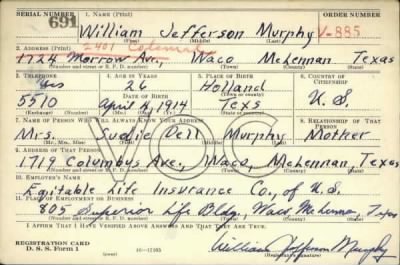 SERIAL NUMBER 1. NAME (Print) ORDER NUMBER
691 William Jefferson Murphy V-885
(First) (Middle) (Last)
2. ADDRESS (Print) 2401 Coleman
1724 Morrow Ave., Waco McLennan Texas
(Number and street or R. F. D. number) (Town) (County) (State)
3. TELEPHONE 4. AGE IN YEARS 5. PLACE OF BIRTH 6. COUNTRY OF CITIZENSHIP
Yes 26 Holland
DATE OF BIRTH
5570 April 4, 1914 Texs U. S.
7. NAME OF PERSON WHO WILL ALWAYS KNOW YOUR ADDRESS 8. RELATIONSHIP OF THAT PERSON
Mrs. Sudie Dell Murphy Mother
(Mr., Mrs., Miss) (First) (Middle) (Last)
9. ADDRESS OF THAT PERSON
1719 Columbus Ave., Waco, McLennan, Texas
(Number and street or R. F. D. number) (Town) (County) (State)
10. EMPLOYER'S NAME
Equitable Life Insurance Co., of U.S.
11. PLACE OF EMPLOYMENT OR BUSINESS
805 Superior Life Bldg., Waco McLennan Texas
(Number and street or R. F. D. number) (Town) (County) (State)
I AFFIRM THAT I HAVE VERIFIED ABOVE ANSWERS AND THAT THEY ARE TRUE.
REGISTRATION CARD
D. S. S. Form 1 16—17105 William Jefferson Murphy
(over) (Registrant's signature)
VOC